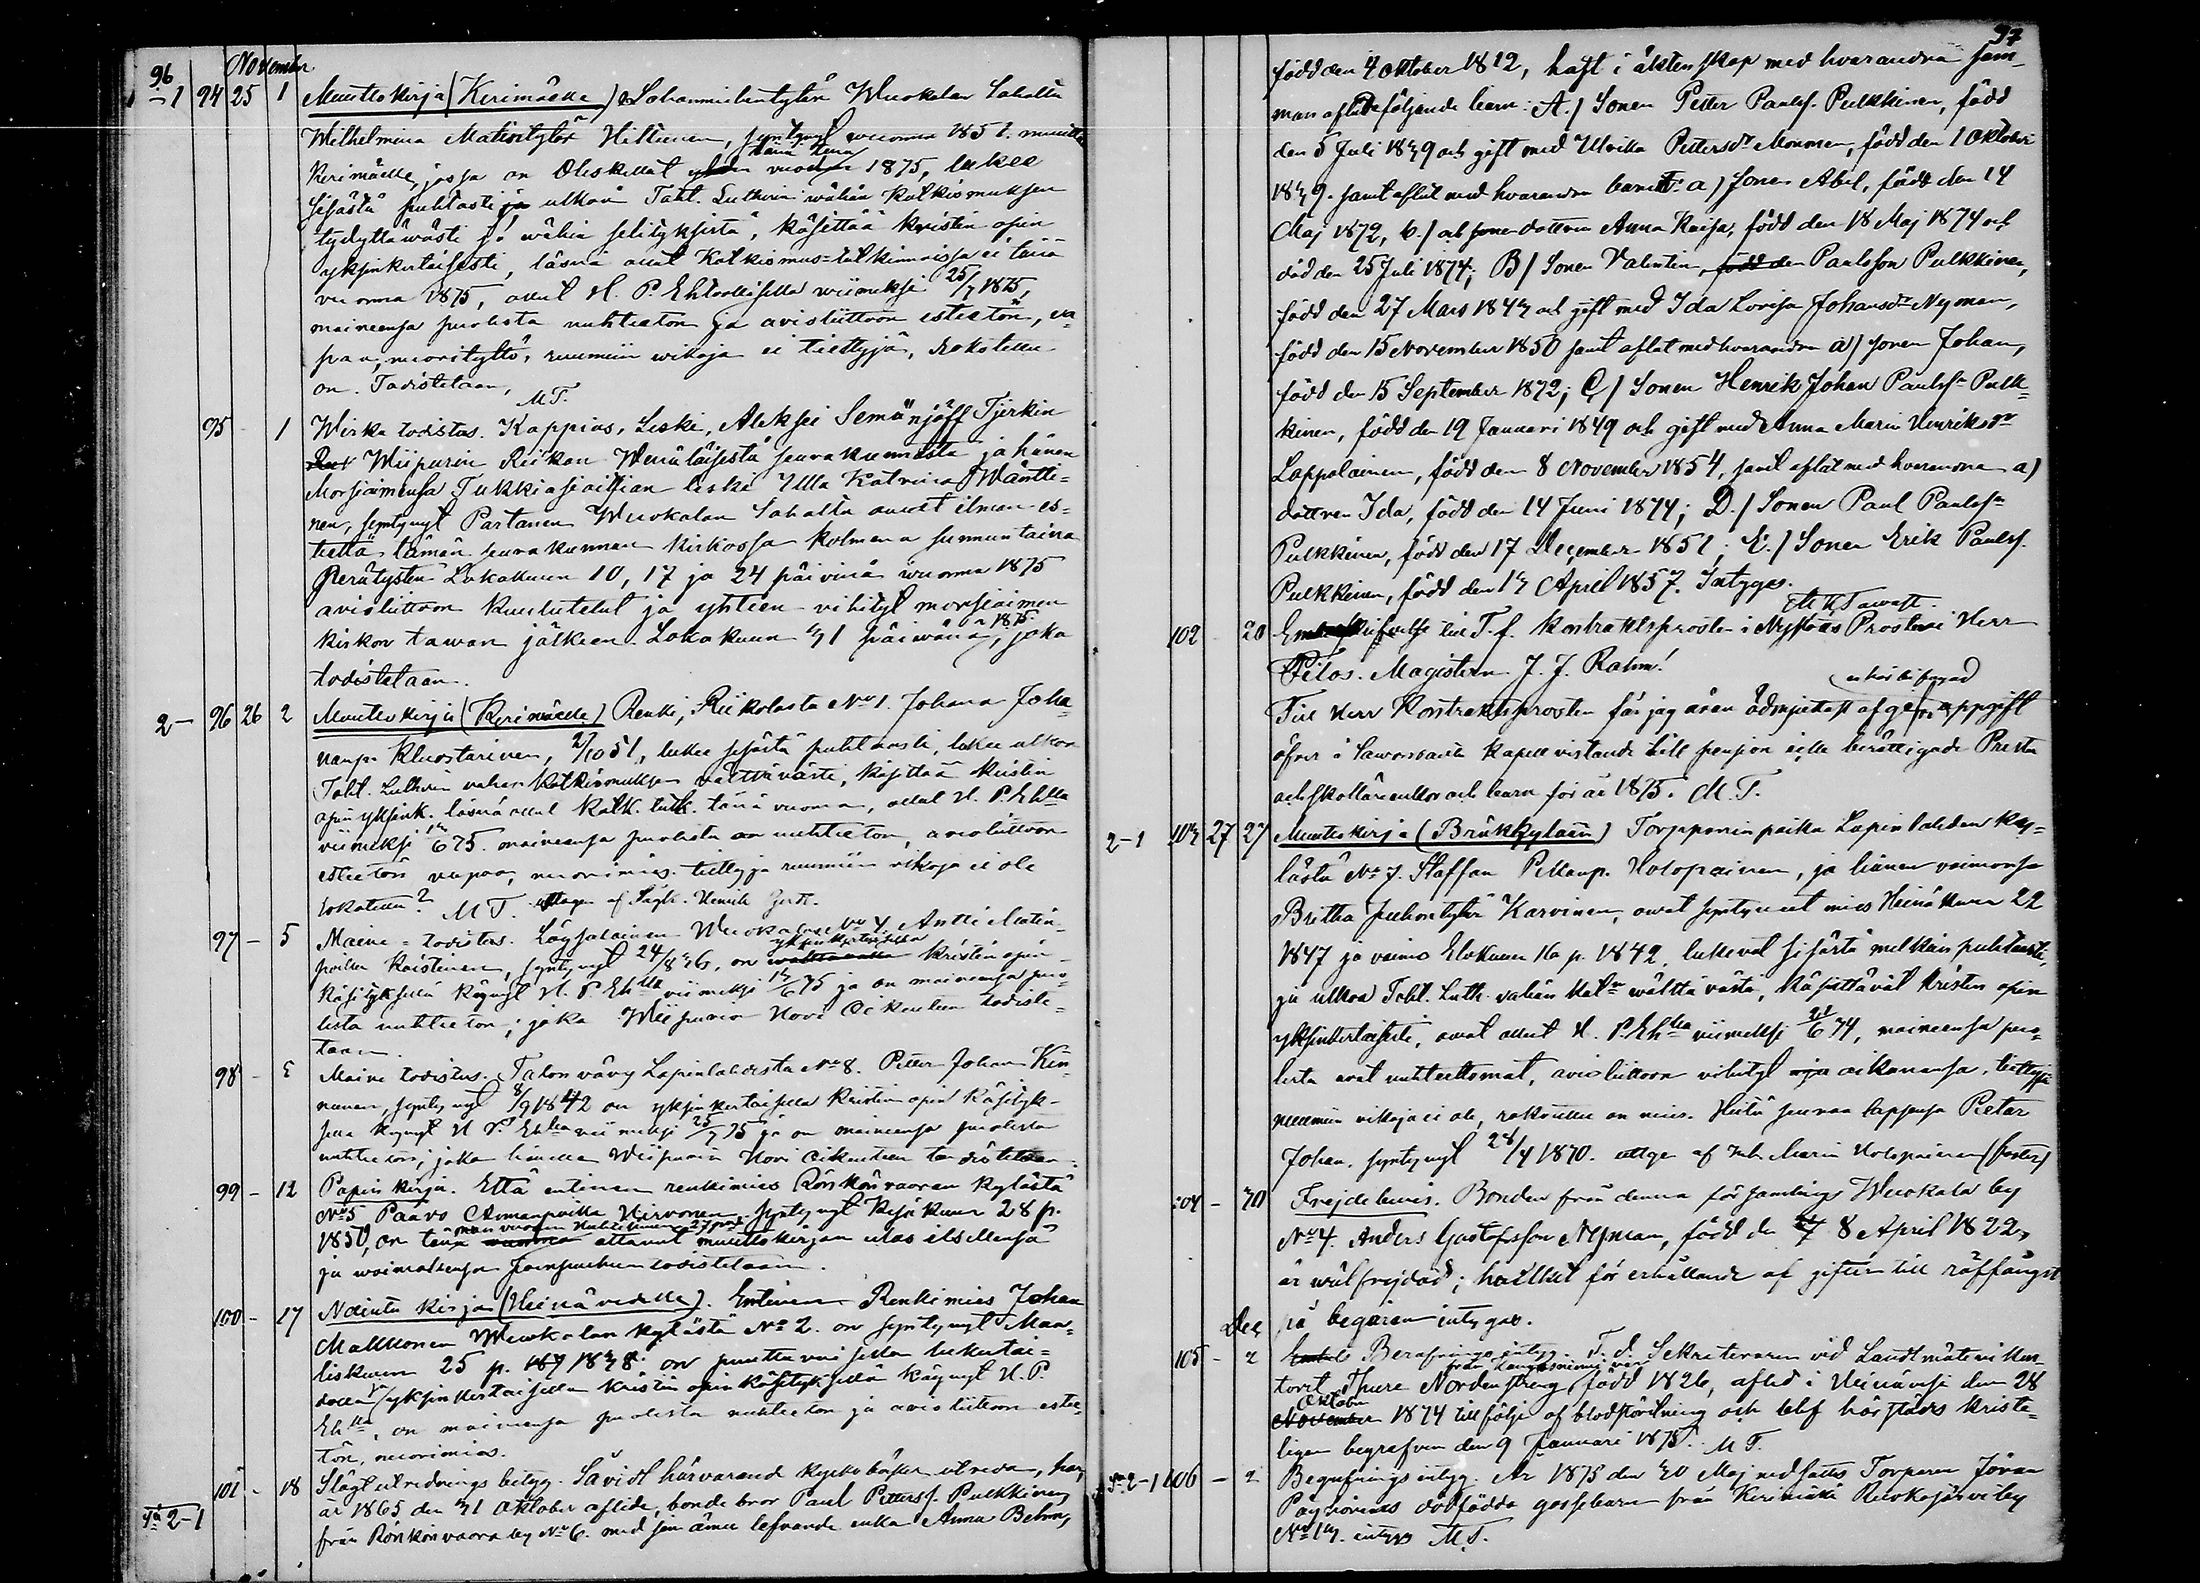 96 November
-1 94 25 1 Muuttokirja (Kerimäelle) Itsellisentytär Wuokalan Sahalta
Wilhelmina Matintytär Hiltunen, syntynyt wuonna 1851. muutta
Kerimäelle, jossa on Oleskellut tänä vuonna 1875, lukee
Sisästä puhtaasti ja ulkoa Toht. Lutherin wähän Katkismuksen
tydyttäwästi ja wähin selityksistä, käsittää kristin opin
yksinkertaisesti, läsnä ollut Katkismus-tutkinnoissa ei tänä
vuonna 1875, ollut H. P. Ehtoollisella wiimeksi 25/7 1875,
maineensa puolesta nuhteeton ja avioliittoon esteetön, va-
paa, nuorityttö, ruumiin wikoja ei tiettyjä, rokotettu
on. Todistetaan,
M T.
95 - 1 Wirka todistus. Kappias, Leski, Aleksei Semänjöff Tjerkin
Wiipurin Riikan Wenäläisestä seurakunnasta ja hänen
Morsiamensa Tukkiasioitsian leski Ulla Katrina Wäntti-
nen, syntynyt Partanen Wuokalan Sahalta ovat ilman es-
teettä tämän seurakunnan kirkossa kolmena sunnuntaina
Perätysten Lokakuun 10, 17 ja 24 päivinä wuonna 1875
avioliittoon kuulutetut ja yhteen vihityt morsiaimen
kirkon tawan jälkeen Lokakuun 31 päiwänä, 1875. joka
todistetaan.
2- 96 26 2 Muuttokirja (Kerimäelle) Renki, Riikolasta No 1. Johana Joha-
nanp. Kluostarinen, 2/10 51, lukee sisästä puhtaasti, lukee ulkoa
Toht. Lutherin vähän Katkismuksen välttävästi, käsittää kristin
opin yksink. läsnä ollut Katk. tutk. tänä vuonna, ollut H. P. Ehlla
viimeksi 13/6 75. maineensa puolesta on nuhteeton, avioliittoon
esteetön vapaa, nuorimies. tiettyjä ruumiin vikoja ei ole
rokotettu? M T. Uttagen af Sågk. Henrik
97 - 5 Maine-todistus. Loysalainen Wuokalasta No 4. Antti Matin-
poika Koistinen, syntynyt 24/8 36, on yksinkertaisella kristin opin
käsityksellä käynyt H. P. Ehlla viimeksi 13/6 75 ja on maineensa puo-
lesta nuhteeton; joka Wiipurin Hovi Oikeuteen todiste-
taan.
98 - 5 Maine todistus. Talon vävy Lapinlahdesta No 8. Petter Johan Kin-
nunen, syntynyt 8/9 1842 on yksinkertaisella kristin opin käsityk-
sellä käynyt H P. Ehlla viimeksi 25/7 75 ja on maineensa puolesta
nuhteeton; joka hänelle Wiipurin Hovi Oikeuteen todistetaan.
99 - 12 Papin kirja. Että entinen renkimies Rönkönvaaran kylästä
No 5 Paavo Armanpoika Hirvonen syntynyt Kesäkuun 28 p.
1850, on tänä män vuoden Huhtikuun 27 p:nä ottanut muuttokirjan ulos itsellensä
ja waimollensa Joensuuhun todistetaan.
100 - 17 Nainta kirja (Heinävedelle). Entinen Renkimies Johan
Malkkonen Wuokalan kylästä No 2. on syntynyt Maa-
liskuun 25 p. 1838. on puuttuvaisella lukutai-
dolla ja yksinkertaisella kristin opin käsityksellä käynyt H. P.
Ehlla, on maineensa puolesta nuhteeton ja avioliittoon estee-
tön, nuorimies.
101 - 18 Slägtutrednings betyg. Såvidt härvarande kyrkoböcker utreda, har
år 1865 den 31 Oktober aflidne, bonde bror Paul Petterss. Pulkkinen
2-1 från Rönkönvaara by No 6. med sin ännu lefvande enka Anna Behm,
97
född den 4 Oktober 1812, haft i äktenskap med hvarandra sam-
man aflat följande barn: A./ Sonen Petter Paulss. Pulkkinen, född
den 5 Juli 1839 och gift med Ulrika Pettersdr Mononen, född den 1 Oktober
1839. samt aflat med hvarandra barnet: a) sonen Abel, född den 14
Maj 1872, b./ och dottren Anna Kaisa, född den 18 Maj 1874 och
död den 25 Juli 1874; B/ Sonen Valentin, Paulsson Pulkkinen,
född den 27 Mars 1843 och gift med Ida Lovisa Johansdr Nyman,
född den 15 November 1850 samt aflat med hvarandra a) sonen Johan,
född den 15 September 1872; C/ Sonen Henrik Johan Paulssn Pulk-
kinen, född den 19 Januari 1849 och gift med Anna Maria Henriksdr
Lappalainen, född den 8 November 1854, samt aflat med hvarandra a)
dottren Ida, född den 14 Juni 1874; D./ Sonen Paul Paulssn
Pulkkinen, född den 17 December 1851; E./ Sonen Erik Paulss.
Pulkkinen, född den 13 April 1857. Intygas.
M T
102 20 T. f. Kontraktsprosten i Nyslott Prosten Herr
Filos. Magistern J. J. Rahm!
Till Herr Kontraktsprosten får jag äran ödmjukast afge härbifogad uppgift
öfver i Sawonranta kapell vistande till pension icke berättigade Prest
och skollärarenkor och barn för år 1875. M. T.
2-1 103 27 27 Muuttokirja (Bräkkylään) Torpparinpoika Lapinlahden ky-
lästä No 7. Staffan Pekanp. Holopainen, ja hänen vaimonsa
Britha Juhontytär Karvinen, ovat syntyneet mies Heinäkuun 22
1847 ja vaimo Elokuun 16 p. 1842, lukevat sisästä melkein puhtaasti,
ja ulkoa Toht. Luth. vähän Kat:n wälttävästi, käsittävät kristin opin
yksinkertaisesti, ovat olleet H. P. Ehlla viimeksi 21/6 74, maineensa puo-
lesta ovat nuhteettomat, avioliittoon vihityt aikananssa, tiettyjä
ruumiin vikoja ei ole, rokotettu on mies. Heitä seuraa lapsensa Petar
Johan, syntynyt 28/4 1870. uttagen af Maria Holopainen (faster)
104 - 30 Frejdebevis. Bonden från denna församlings Wuokala by
No 4. Anders Gustafsson Nyman, född den 8 April 1822,
är wälfrejdad; hvilket för erhållande af gifter till räffångst
på begäran intygas.
Dec
105 - 2 Begrafnings intyg. T. d. Sekreteraren vid Landtmäterikon-
toret Thure Nordenstreng, från Kangasniemi född 1826, afled i Heinävesi den 28
Oktober 1874 till följe af blodstörtning och blef härstädes kriste-
ligen begrafven den 9 Januari 1875. M T.
2-1 106 - 2 Begrafnings intyg. År 1875 den 30 Maj nedsattes Torparen Jöran
Päyhönens dödfödda gossebarn från Kerimäki Ruokojärvi by
No 13. intygas M. T.